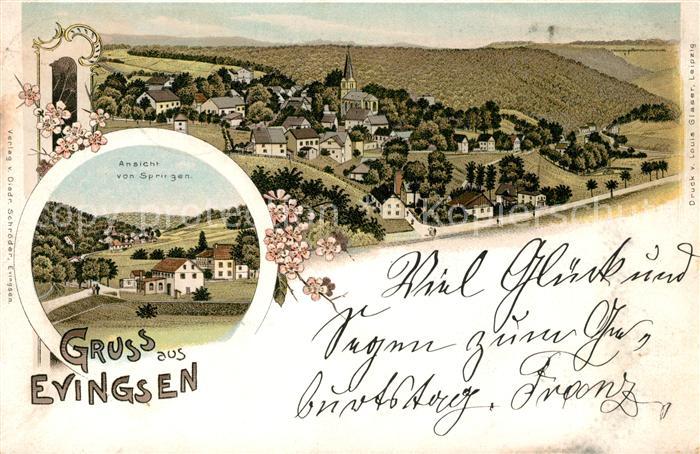 Ansicht
von Springen.
GRUSS aus
EVINGSEN
Viel Glück und
Segen zum Ge-
burtstag. Franz.
Verlag v. Diedr. Schröder, Evingsen.
Druck v. Louis Glaser, Leipzig